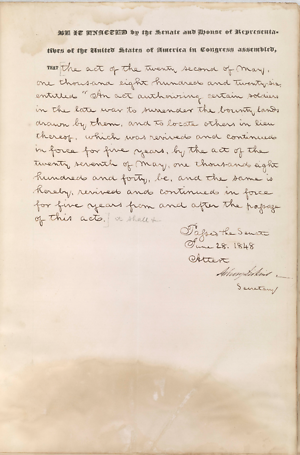 BE IT ENACTED by the Senate and House of Representa-
tives of the United States of America in Congress assembled,
THAT the act of the twenty second of May,
one thousand eight hundred and twenty six,
entitled "An act authorizing certain soldiers
in the late war to surrender the bounty lands
drawn by them, and to locate others in lieu
thereof, which was revived and continued
in force for five years, by the act of the
twenty seventh of May, one thousand eight
hundred and forty, be, and the same is
hereby, revived and continued in force
for five years from and after the passage
of this act.
Passed the Senate
June 28. 1848
Attest
Secretary